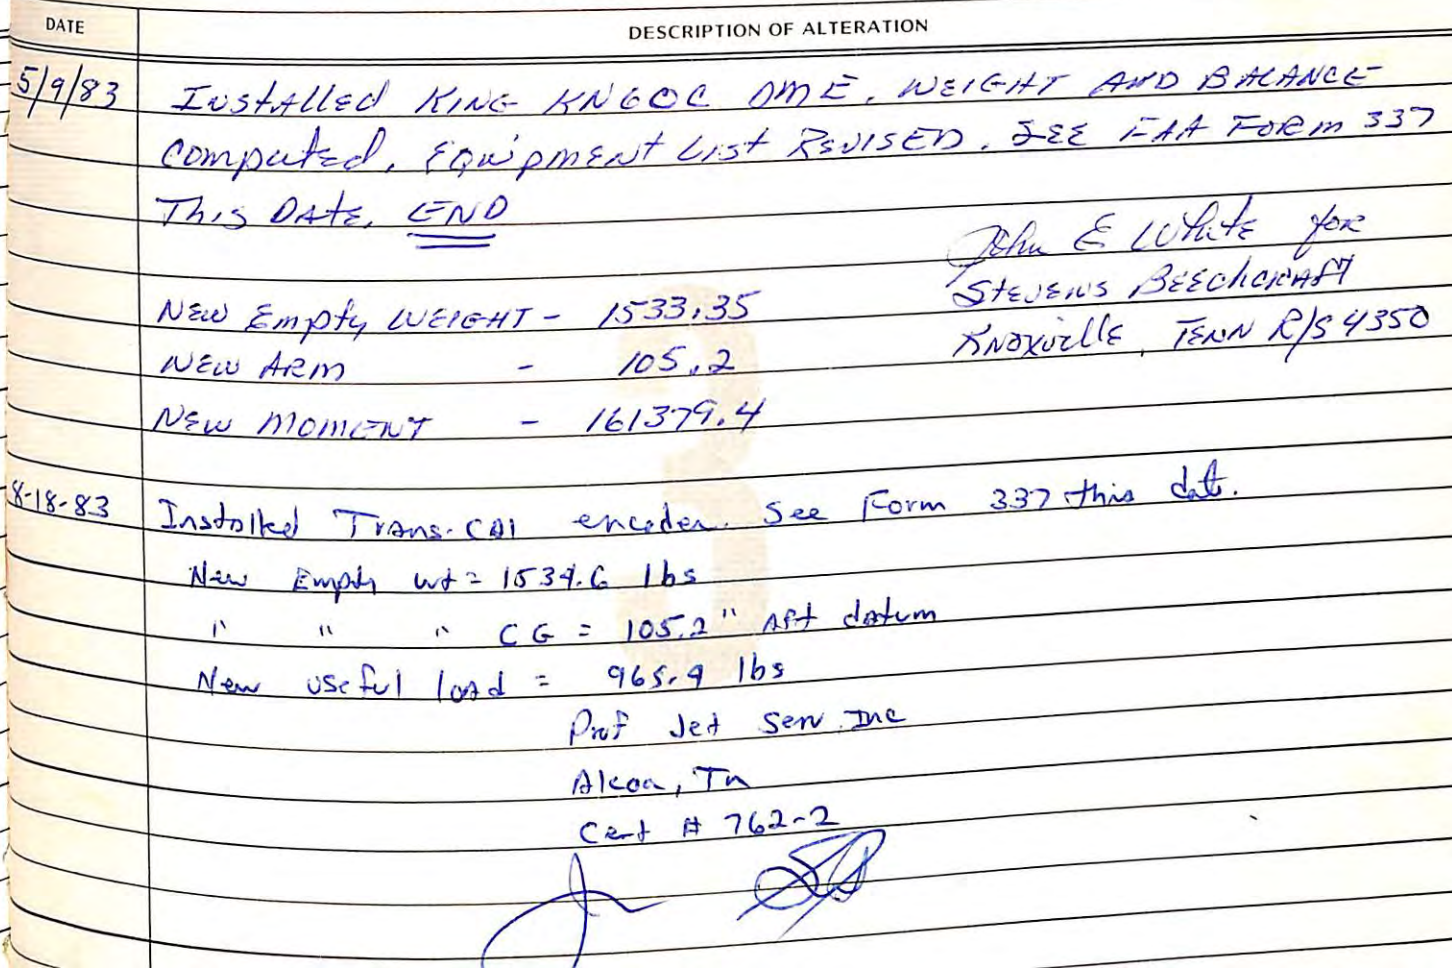 DATE DESCRIPTION OF ALTERATION
5/9/83 Installed King KN60C DME. Weight and Balance
computed, Equipment List Revised. See FAA Form 337
This Date. END
John E White for
Stevens Beechcraft
Knoxville, Tenn R/S 4350
New Empty Weight - 1533.35
New Arm - 105.2
New Moment - 161379.4
8-18-83 Installed Trans-Cal encoder. See Form 337 this dat.
New Empty wt = 1534.6 lbs
" " " CG = 105.2" Aft datum
New useful load = 965.4 lbs
Prof Jet Serv. Inc
Alcoa, Tn
Cert # 762-2